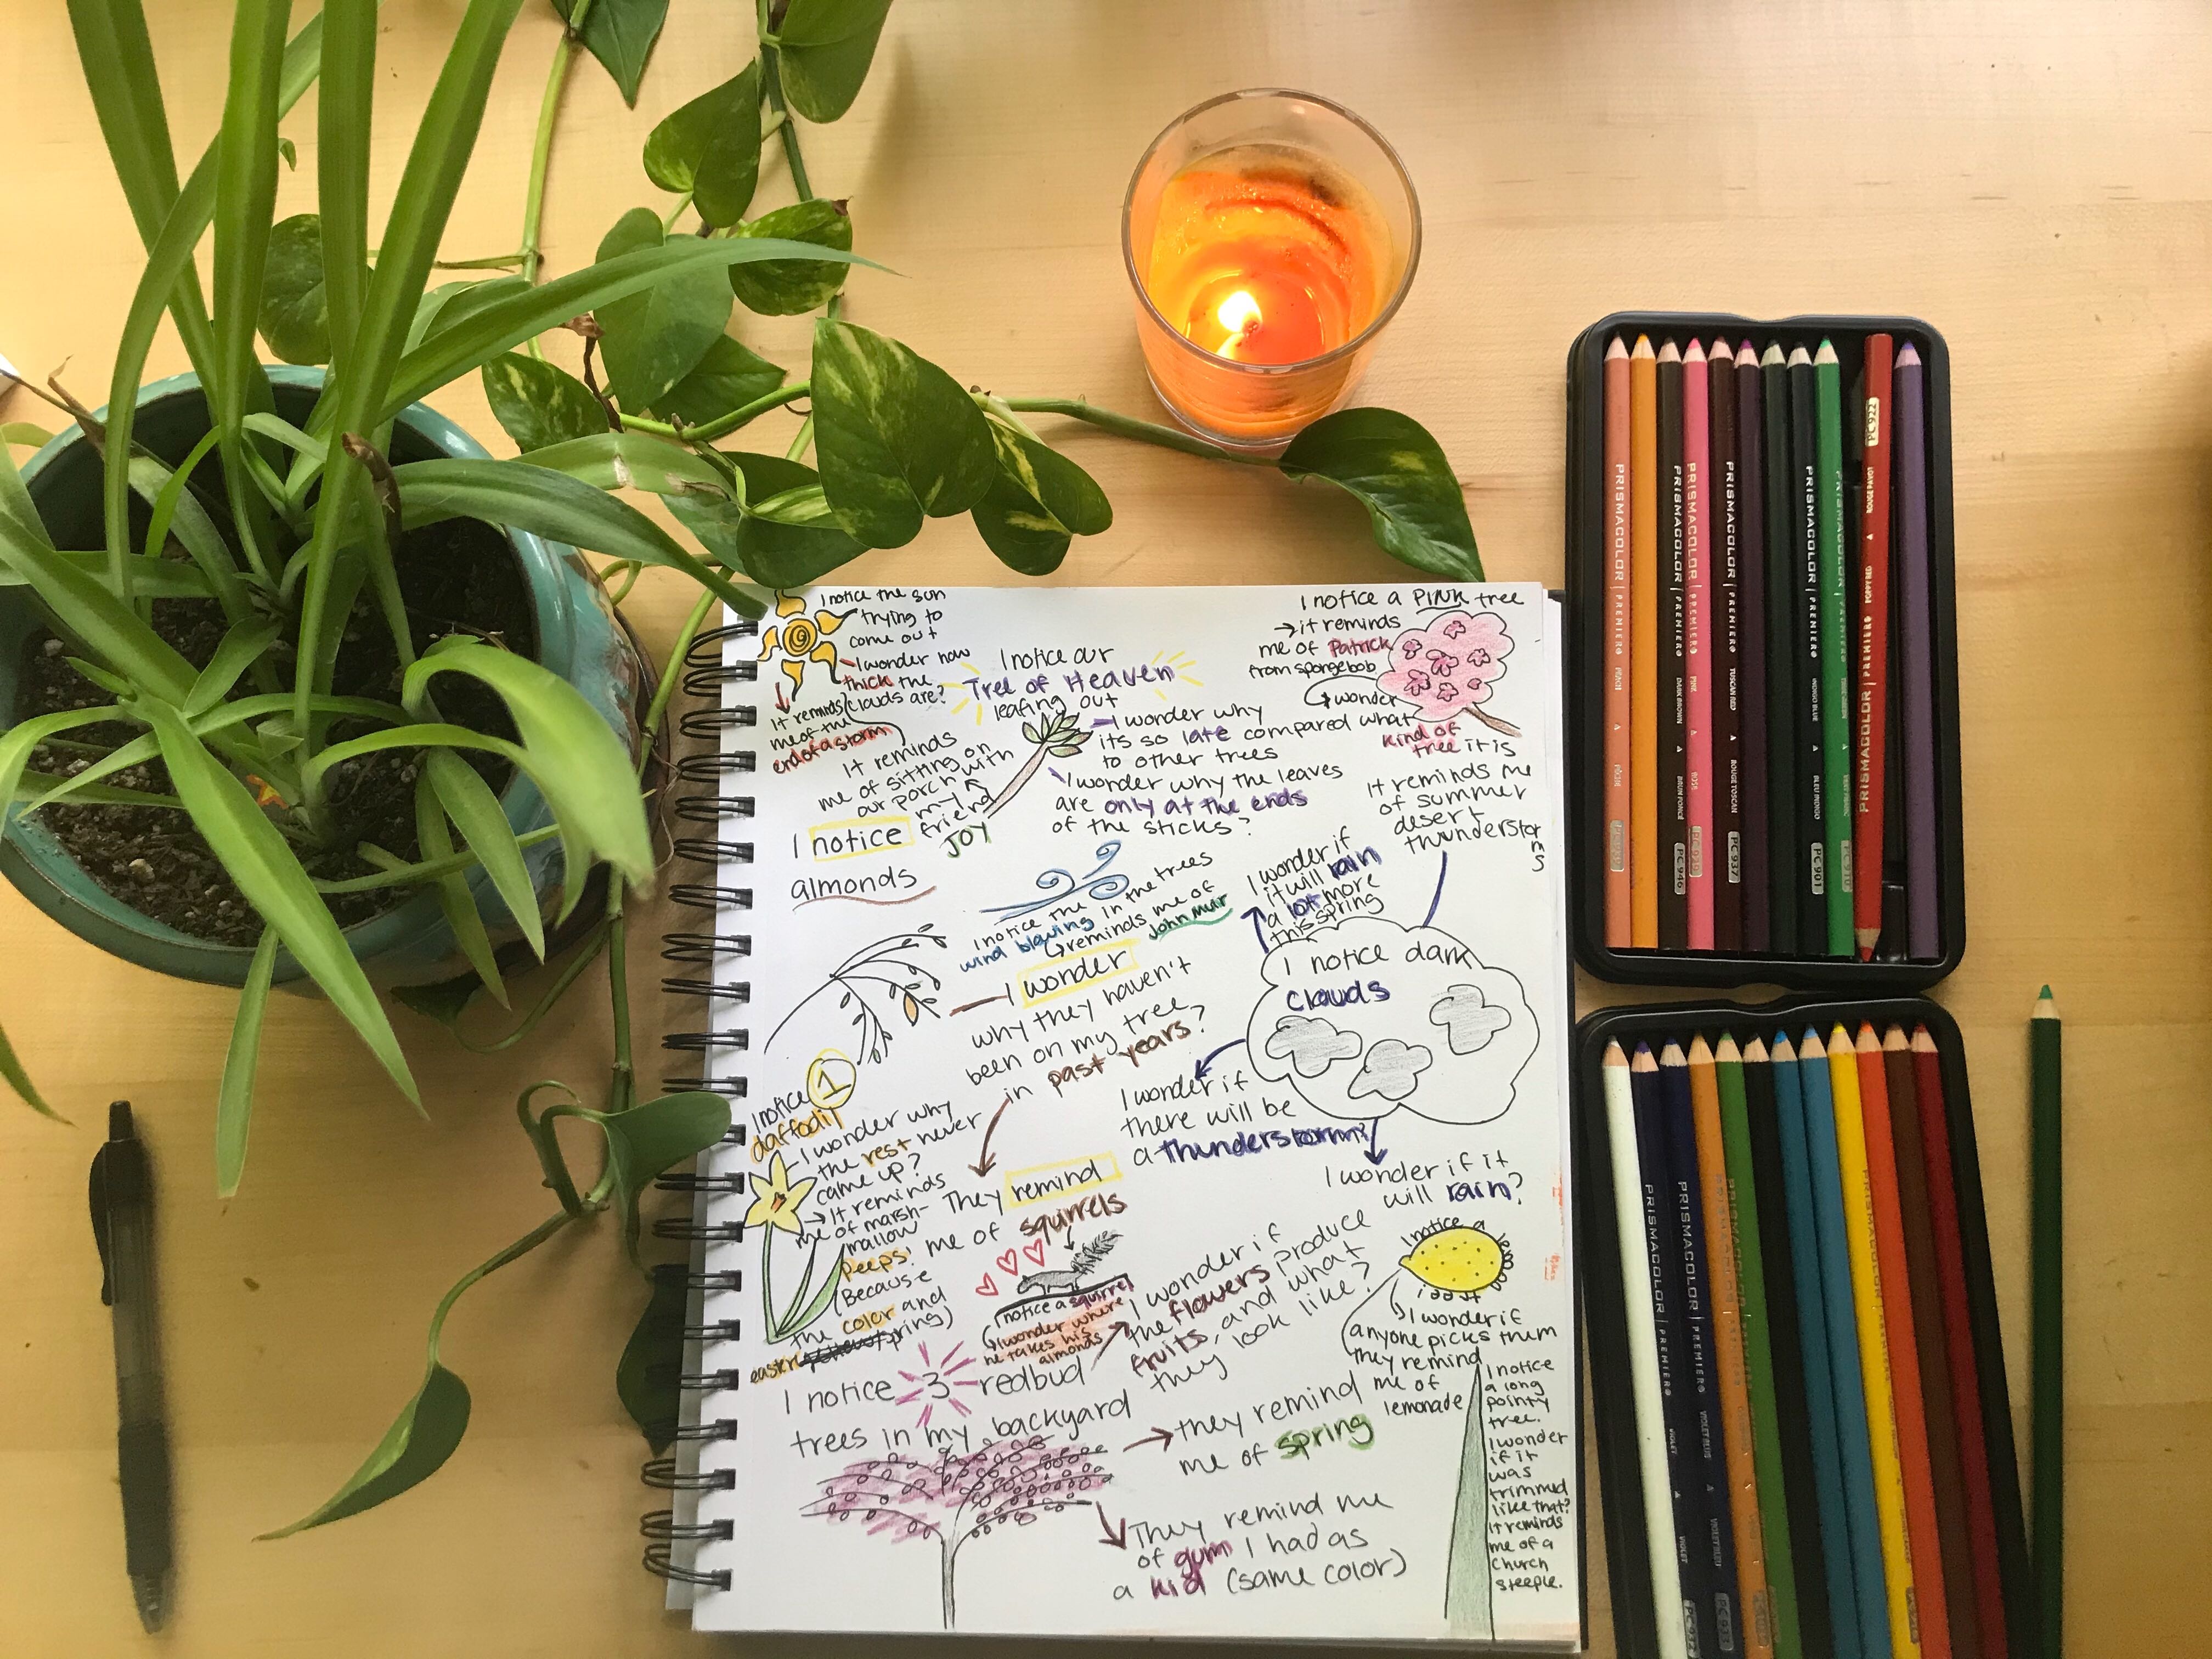 I notice the sun
trying to
come out
I wonder how
thick the
clouds are?
It reminds
me of the
end of a storm
I notice our
Tree of Heaven
leafing out
I wonder why
its so late compared
to other trees
I wonder why the leaves
are only at the ends
of the sticks?
It reminds
me of sitting on
our porch with
my
friend
JOY
I notice a PINK tree
it reminds
me of Patrick
from spongebob
I wonder
what
kind of
tree it is
I notice
almonds
I wonder
why they haven't
been on my tree
in past years?
They remind
me of squirrels
I notice the
wind blowing in the trees
reminds me of
John Muir
It reminds me
of summer
desert
thunderstorms
I wonder if
it will rain
a lot more
this spring
I notice dark
clouds
I wonder if
there will be
a thunderstorm?
I wonder if it
will rain?
I notice 1
daffodil
I wonder why
the rest never
came up?
It reminds
me of marsh-
mallow
peeps!
(Because
the color and
easter spring)
I notice a squirrel
I wonder where
he takes his
almonds
I notice 3 redbud
trees in my backyard
I wonder if
the flowers produce
fruits, and what
they look like?
they remind
me of spring
They remind me
of gum I had as
a kid (same color)
I notice a
lemon
tree!
I wonder if
anyone picks them
They remind
me of
lemonade
I notice
a long
pointy
tree.
I wonder
if it
was
trimmed
like that?
It reminds
me of a
church
steeple.
PRISMACOLOR PREMIER PEACH
PRISMACOLOR PREMIER DARK BROWN PC 946
PRISMACOLOR PREMIER PINK ROSE
PRISMACOLOR PREMIER TUSCAN RED ROUGE TOSCAN PC 937
PRISMACOLOR PREMIER INDIGO BLUE BLEU INDIGO PC 901
PRISMACOLOR PREMIER
PRISMACOLOR PREMIER POPPY RED ROUGE PAVOT PC 922
PRISMACOLOR PREMIER VIOLET PC 932
PRISMACOLOR PREMIER VIOLET BLUE PC 933
PRISMACOLOR
PRISMACOLOR
PRISMACOLOR